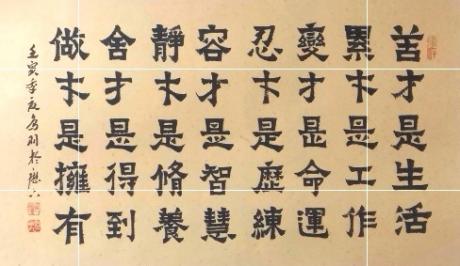 苦才是生活
累才是工作
變才是命運
忍才是歷練
容才是智慧
靜才是脩養
舍才是得到
做才是擁有
壬寅季夏